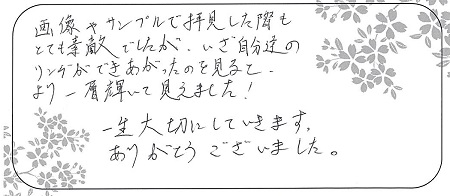 画像やサンプルで拝見した際も
とても素敵でしたが、いざ自分達の
リングができあがったのを見ると、
より一層輝いて見えました!
一生大切にしていきます。
ありがとうございました。